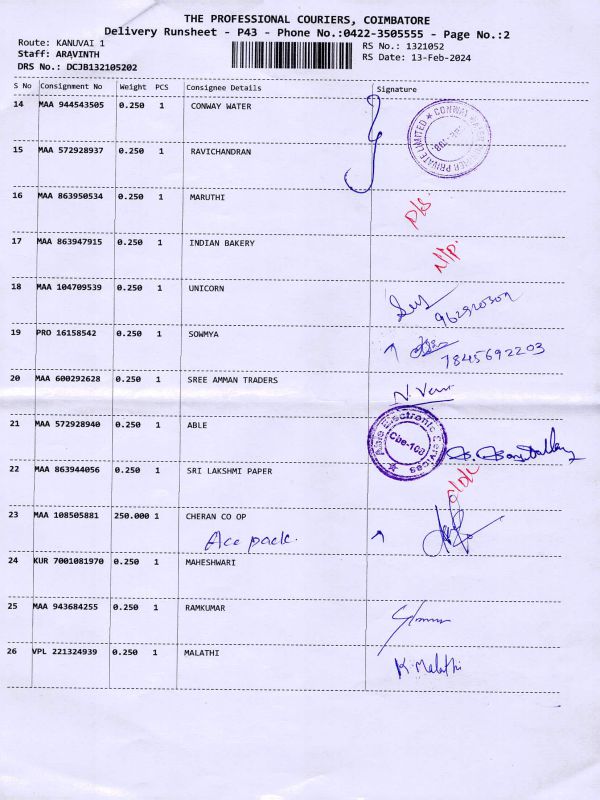 THE PROFESSIONAL COURIERS, COIMBATORE
Delivery Runsheet - P43 - Phone No.:0422-3505555 - Page No.:2
Route: KANUVAI 1
Staff: ARAVINTH
DRS No.: DCJB132105202
RS No.: 1321052
RS Date: 13-Feb-2024
S No Consignment No Weight PCS Consignee Details Signature
14 MAA 944543505 0.250 1 CONWAY WATER
15 MAA 572928937 0.250 1 RAVICHANDRAN
16 MAA 863950534 0.250 1 MARUTHI
17 MAA 863947915 0.250 1 INDIAN BAKERY
18 MAA 104709539 0.250 1 UNICORN
19 PRO 16158542 0.250 1 SOWMYA
7845692203
20 MAA 600292628 0.250 1 SREE AMMAN TRADERS
21 MAA 572928940 0.250 1 ABLE
Able Electronic Services
Cbe-108
22 MAA 863944056 0.250 1 SRI LAKSHMI PAPER
23 MAA 108505881 250.000 1 CHERAN CO OP
Ace pack.
24 KUR 7001081970 0.250 1 MAHESHWARI
25 MAA 943684255 0.250 1 RAMKUMAR
26 VPL 221324939 0.250 1 MALATHI
K. Malathi